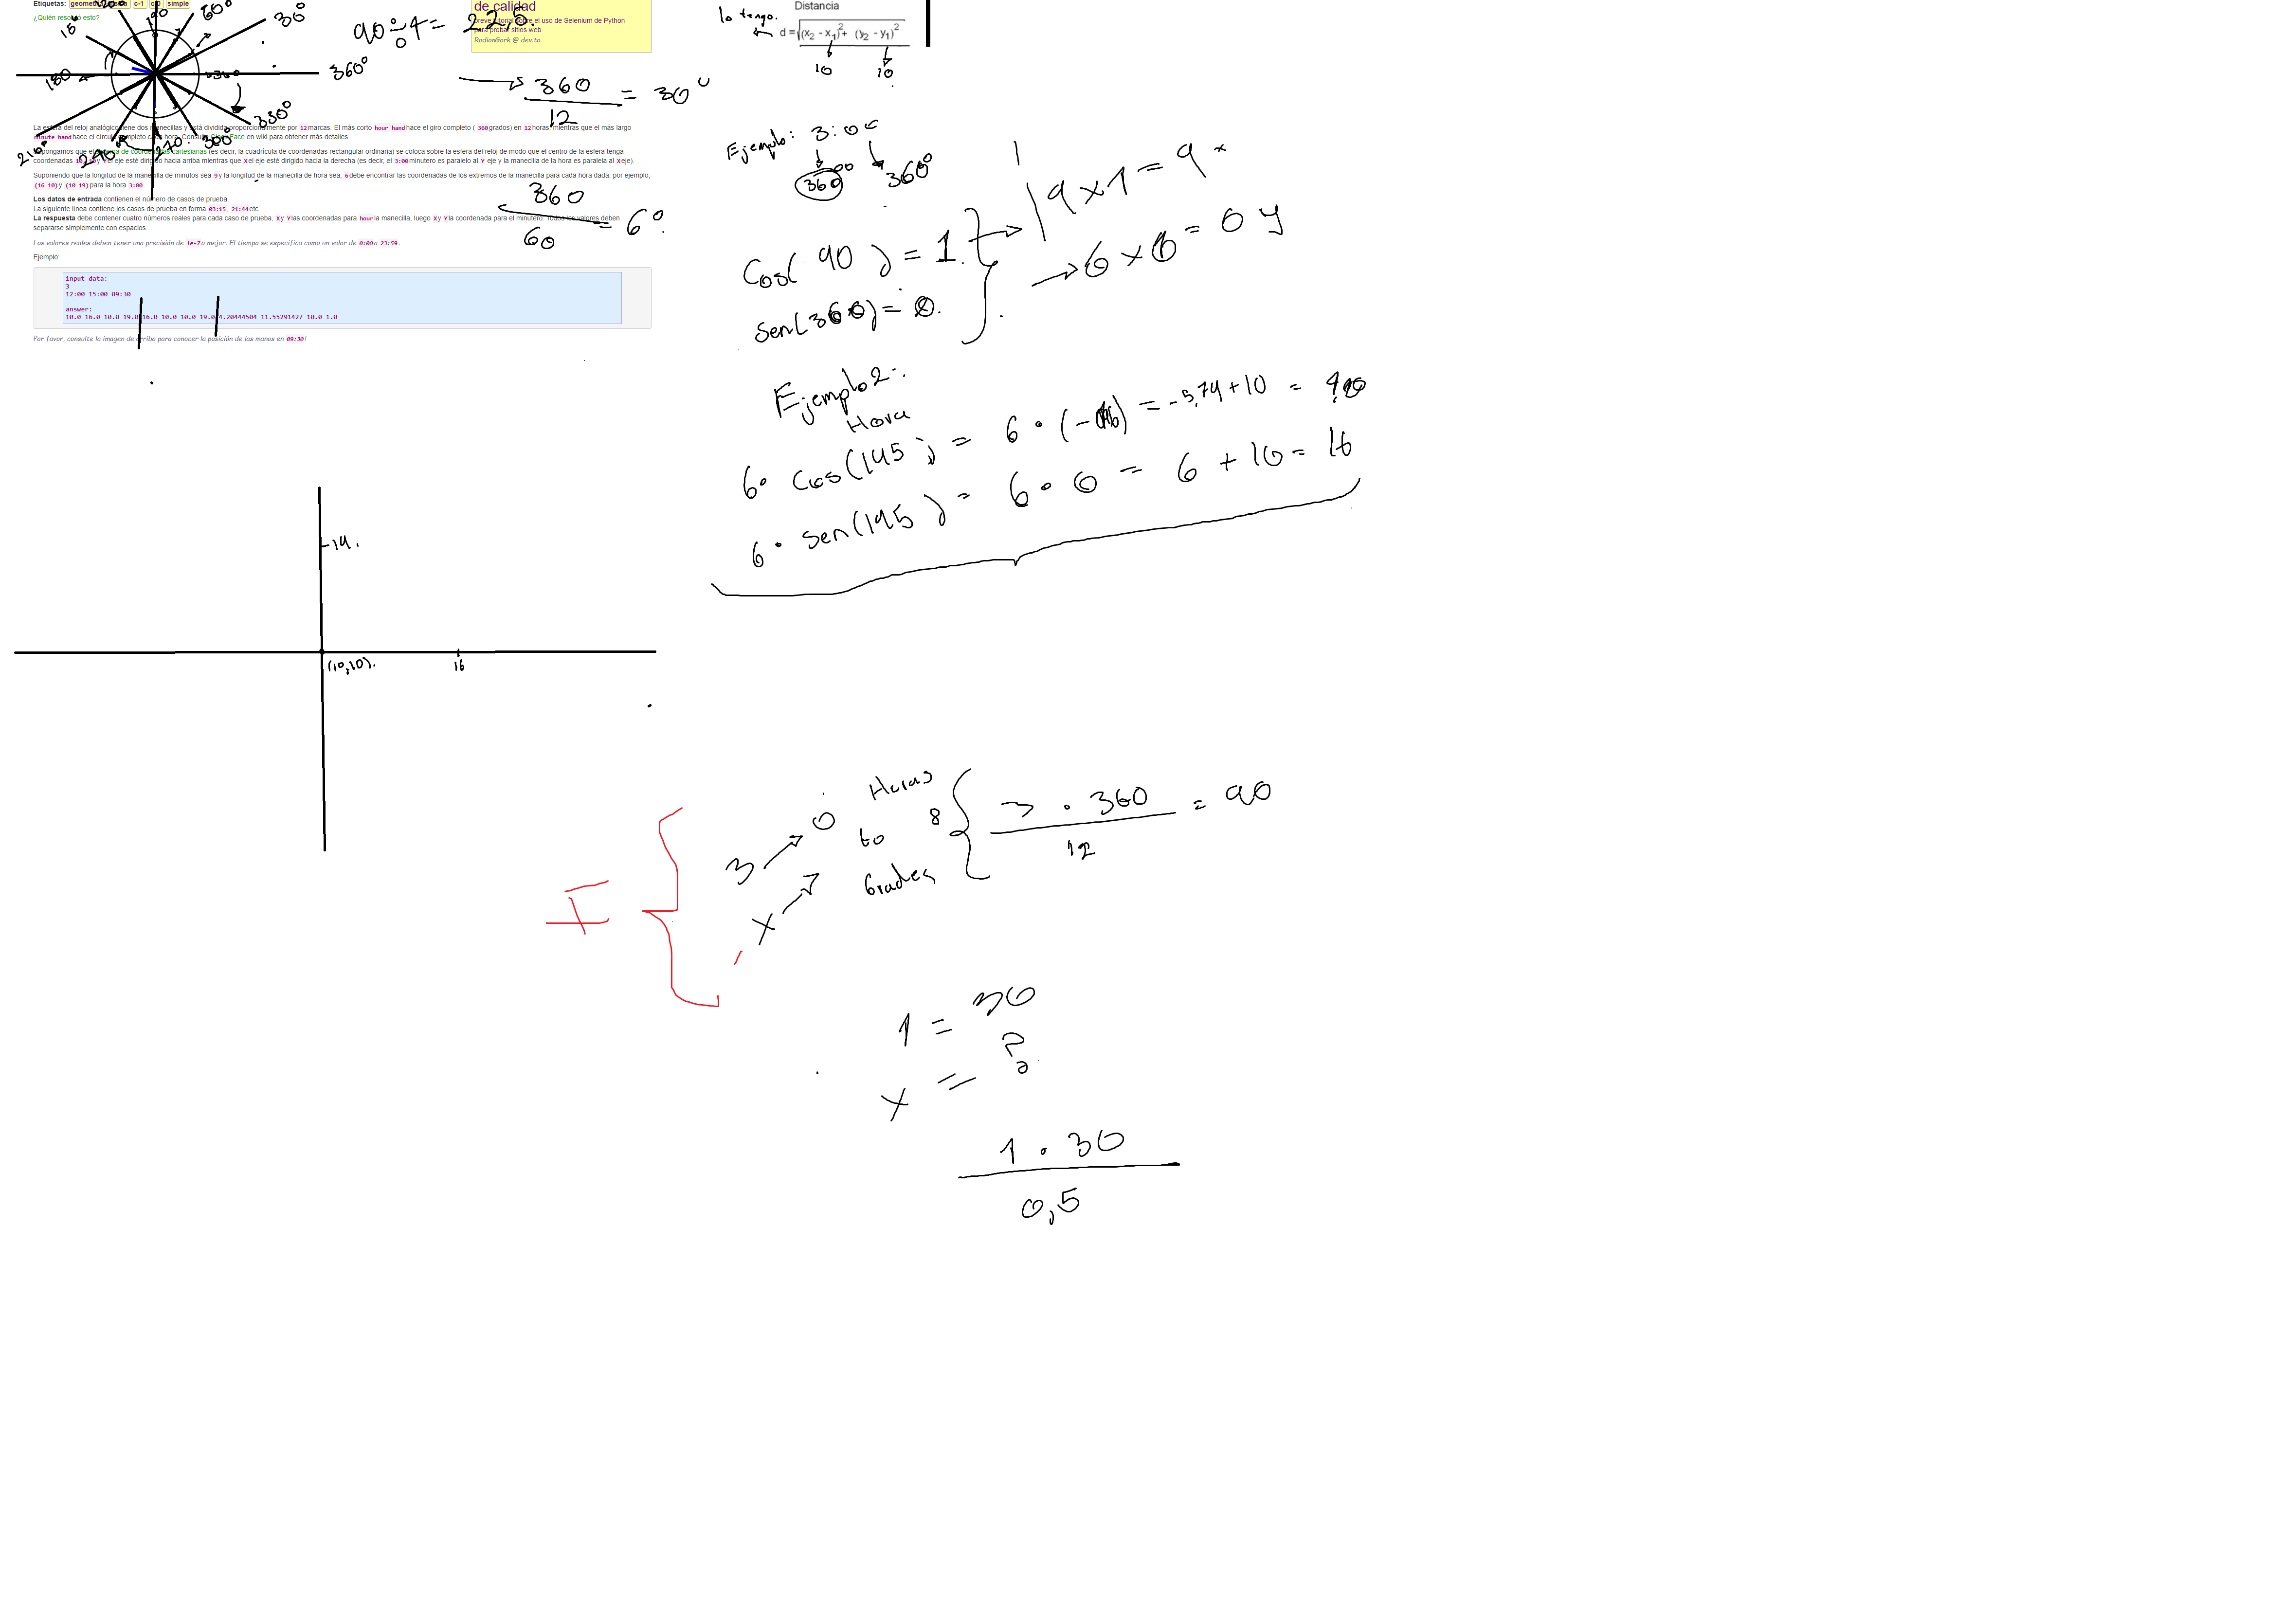 Etiquetas: c-1 simple
¿Quién resolvió esto?
de calidad
breve tutorial sobre el uso de Selenium de Python
para probar sitios web
RodionGork @ dev.to
60°
30°
180
360
360°
330°
300°
270.
240
210°
90÷4= 22,5.
360
12
= 30°
360
60
= 6°.
La esfera del reloj analógico tiene dos manecillas y está dividida proporcionalmente por 12 marcas. El más corto hour hand hace el giro completo ( 360 grados) en 12 horas, mientras que el más largo
minute hand hace el círculo completo cada hora. Consulte Clock Face en wiki para obtener más detalles.
Supongamos que el sistema de coordenadas cartesianas (es decir, la cuadrícula de coordenadas rectangular ordinaria) se coloca sobre la esfera del reloj de modo que el centro de la esfera tenga
coordenadas y el eje esté dirigido hacia arriba mientras que X el eje esté dirigido hacia la derecha (es decir, el 3:00 minutero es paralelo al Y eje y la manecilla de la hora es paralela al X eje).
Suponiendo que la longitud de la manecilla de minutos sea 9 y la longitud de la manecilla de hora sea, 6 debe encontrar las coordenadas de los extremos de la manecilla para cada hora dada, por ejemplo,
(16 10) y (10 19) para la hora 3:00.
Los datos de entrada contienen el número de casos de prueba.
La siguiente línea contiene los casos de prueba en forma 03:15, 21:44 etc.
La respuesta debe contener cuatro números reales para cada caso de prueba, X y Y las coordenadas para hour la manecilla, luego X y Y la coordenada para el minutero. Todos los valores deben
separarse simplemente con espacios.
Los valores reales deben tener una precisión de 1e-7 o mejor. El tiempo se especifica como un valor de 0:00 a 23:59.
Ejemplo:
input data:
3
12:00 15:00 09:30
answer:
10.0 16.0 10.0 19.0 16.0 10.0 10.0 19.0 4.20444504 11.55291427 10.0 1.0
Por favor, consulte la imagen de arriba para conocer la posición de las manos en 09:30!
lo tengo.
Distancia
d = √(x2 - x1)²+ (y2 - y1)²
10
10
Ejemplo: 3:00
360
360°
Cos( 90 ) = 1.
Sen(360) = 0.
9 x 1 = 9 x
6 x 0 = 0 y
Ejemplo 2:
Hora
6• Cos(195) = 6 • = -5,79+10 =
6• Sen(195) = 6 • 0 = 6 + 10 = 16
19.
(10,10).
16
I
3
0
X
Horas
to
Grades
8
3 . 360
12
= 90
1 = 30
x = ?
1 . 30
0,5